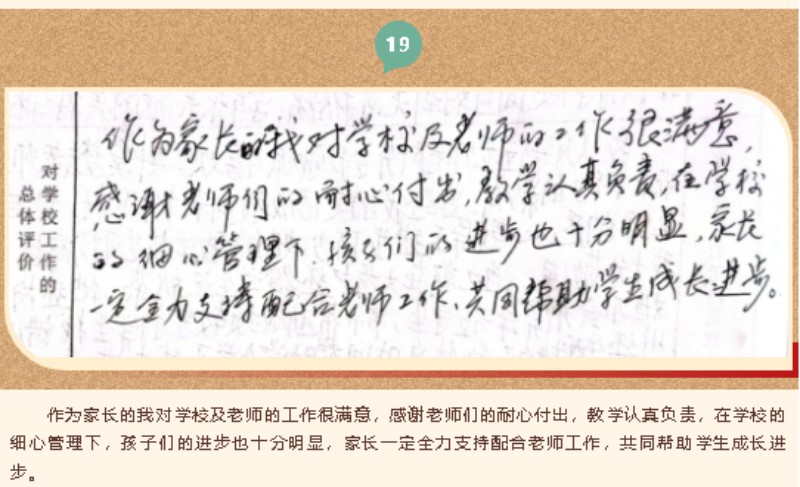 19
对学校工作的
总体评价
作为家长的我对学校及老师的工作很满意，
感谢老师们的耐心付出，教学认真负责，在学校
的细心管理下，孩子们的进步也十分明显，家长
一定全力支持配合老师工作、共同帮助学生成长进步。
作为家长的我对学校及老师的工作很满意，感谢老师们的耐心付出，教学认真负责，在学校的
细心管理下，孩子们的进步也十分明显，家长一定全力支持配合老师工作，共同帮助学生成长进
步。